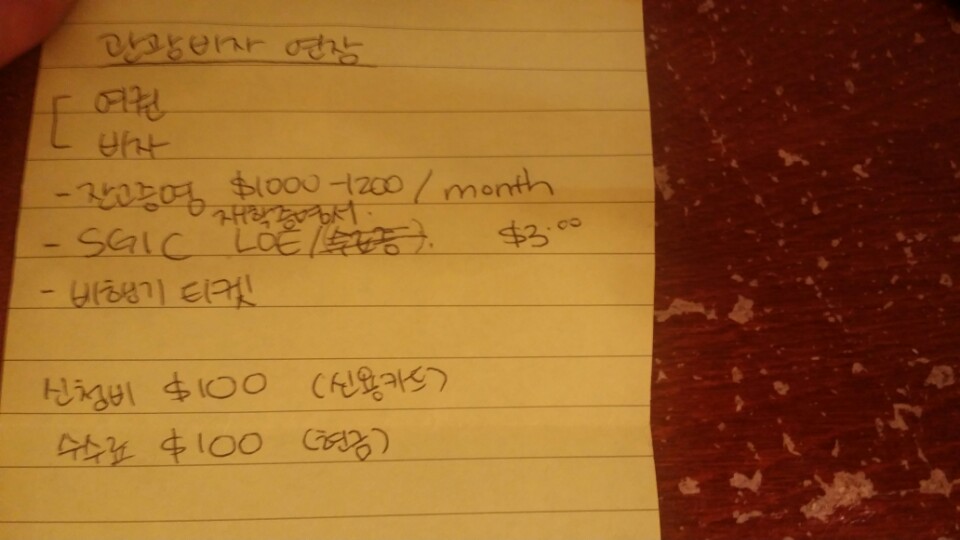 관광비자 연장
여권
비자
- 잔고증명 $1000-1200 / month
재학증명서.
- SGIC LOE / (수료증). $3.00
- 비행기 티켓
신청비 $100 (신용카드)
수수료 $100 (현금)